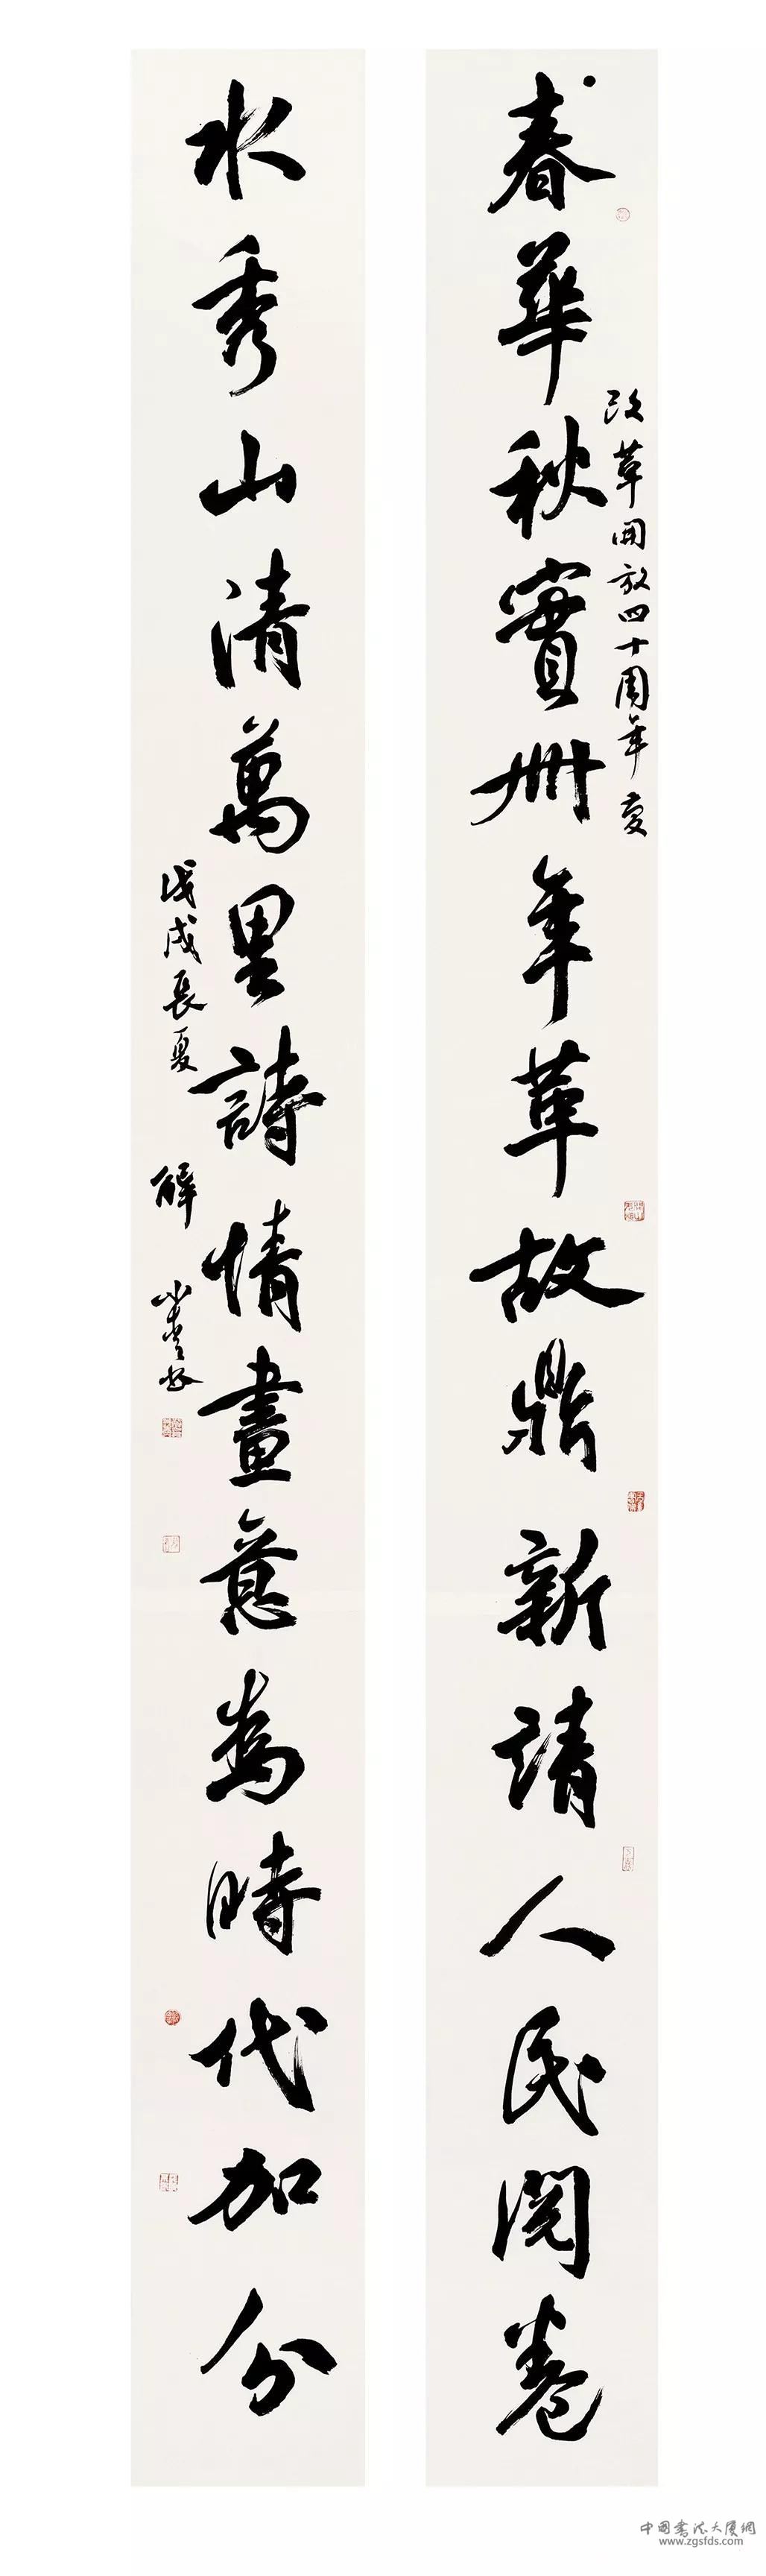 春華秋實卌年革故鼎新請人民閱卷
改革開放四十周年
水秀山清萬里詩情畫意為時代加分
戊戌長夏
中國書法大廈網
www.zgsfds.com